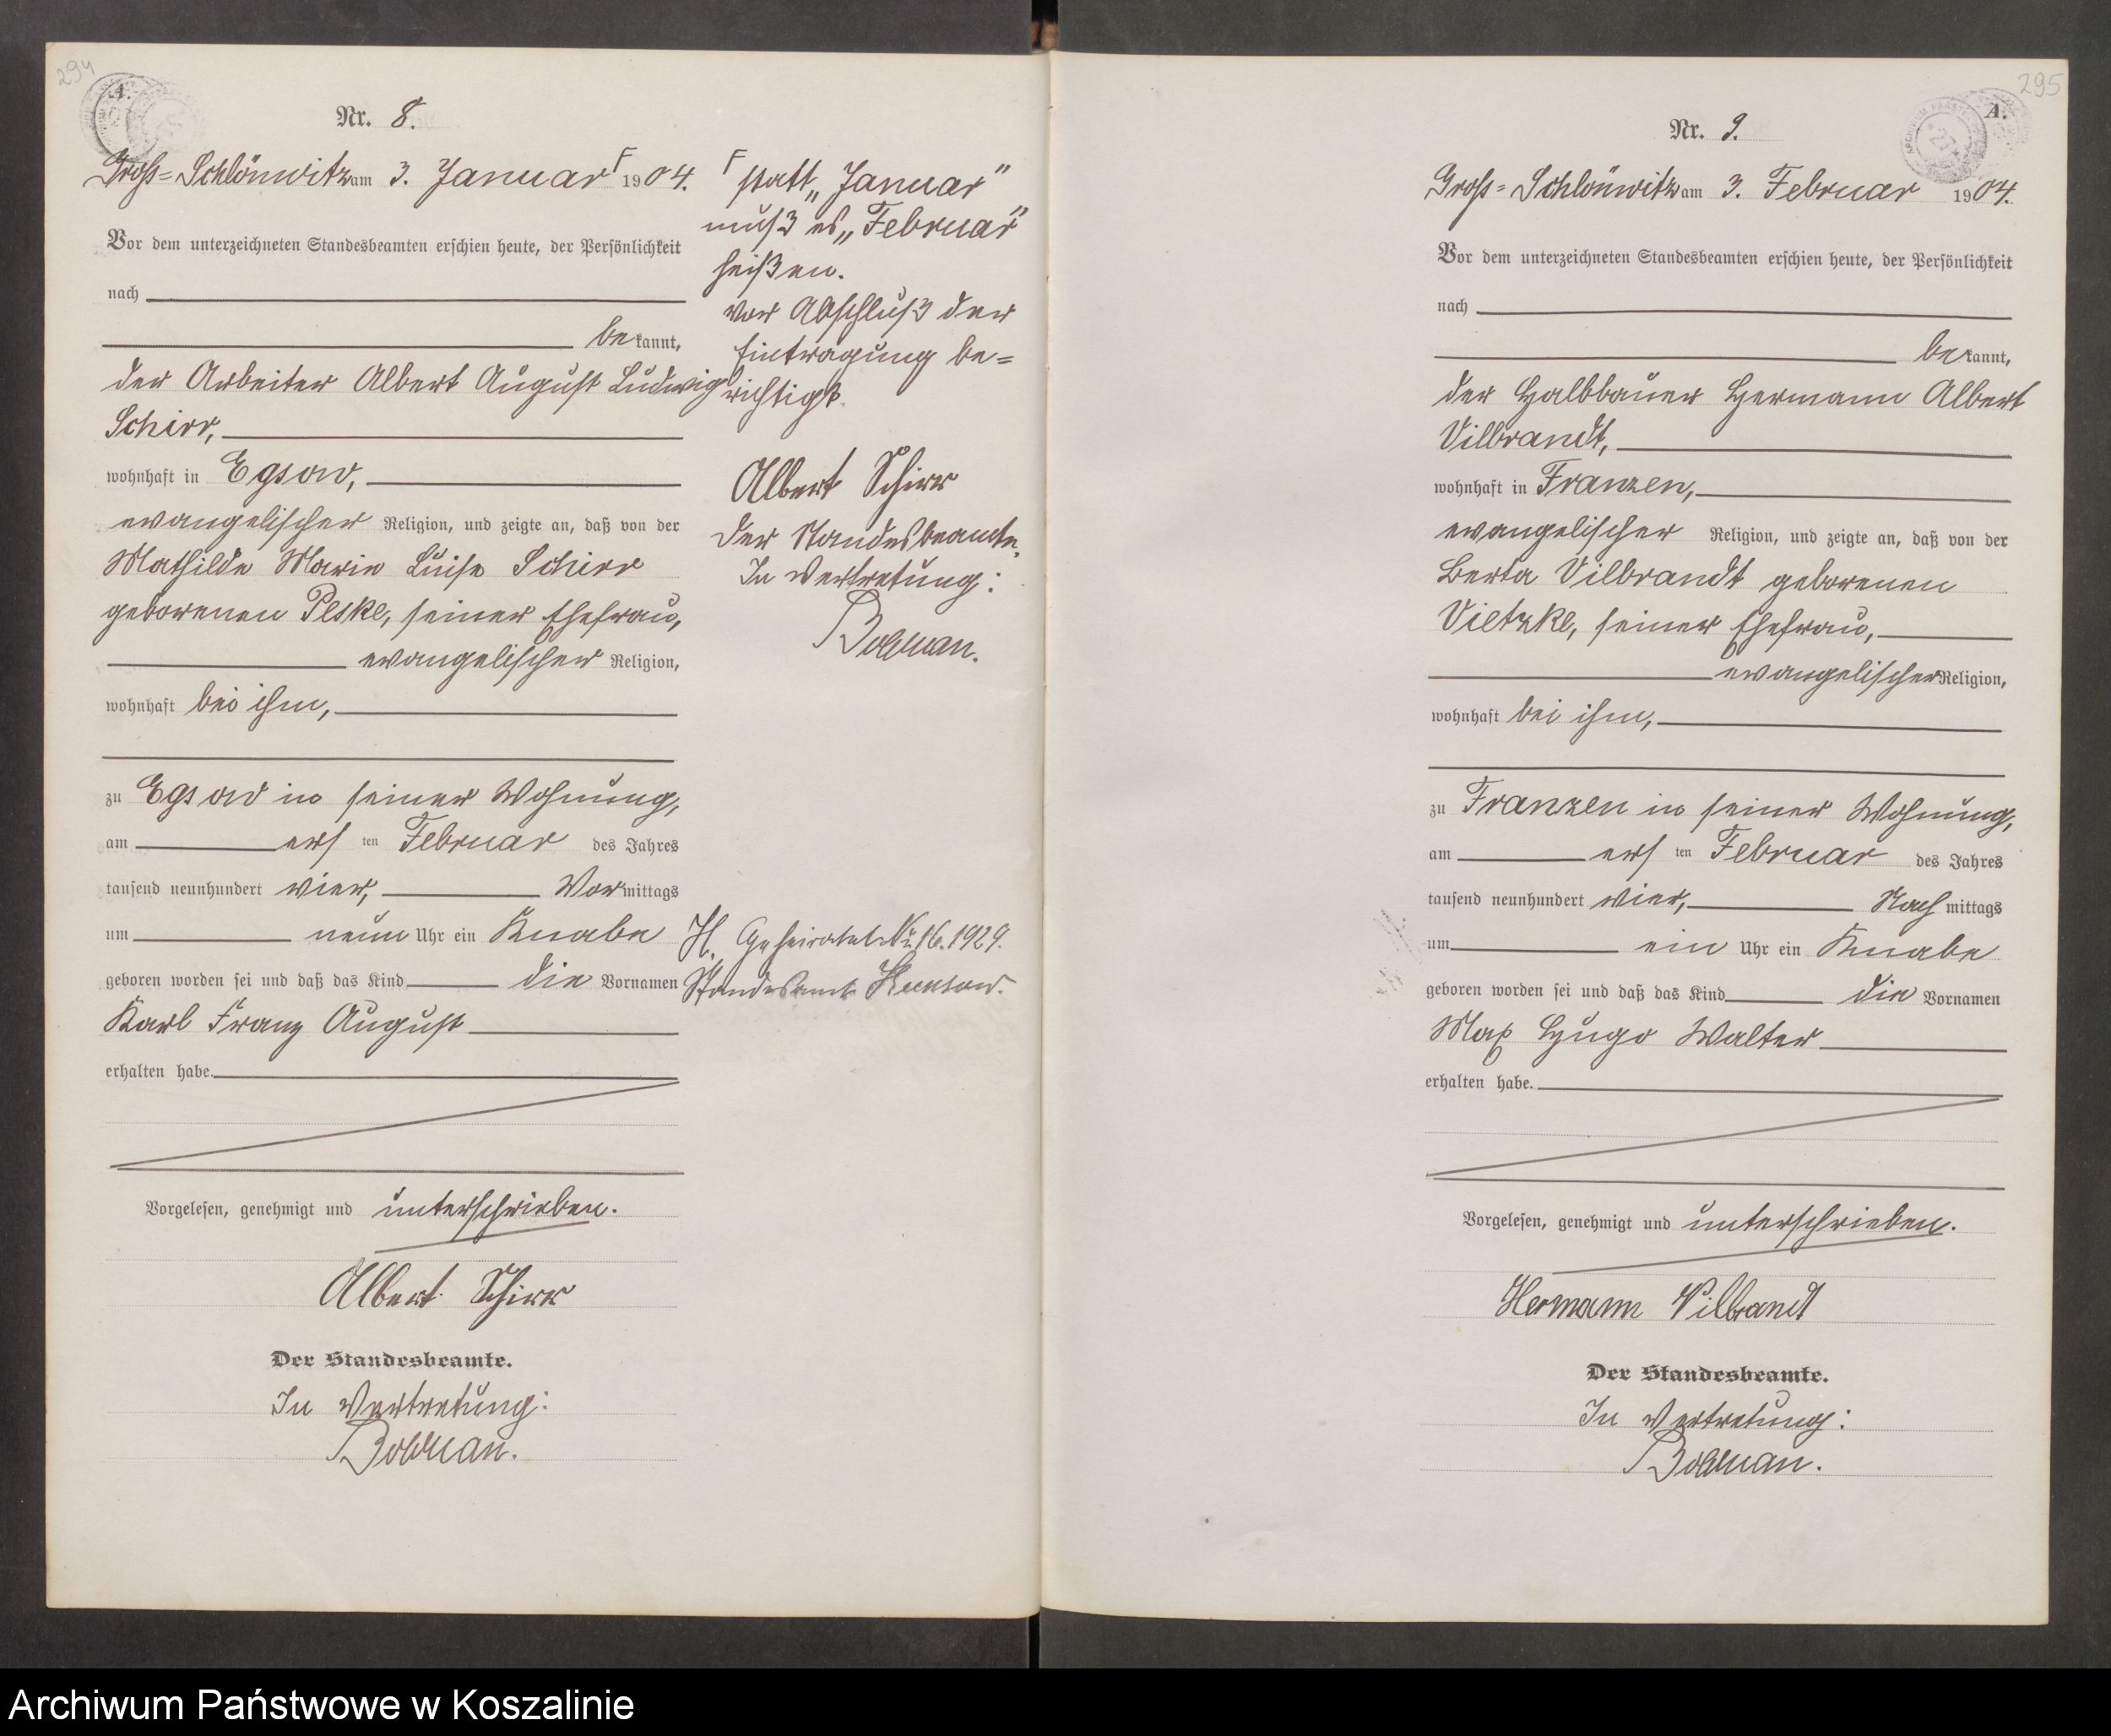 294
A.
Nr. 8.
Groß=Schlönwitz am 3. Januar ꟻ 1904.
Vor dem unterzeichneten Standesbeamten erschien heute, der Persönlichkeit
nach
bekannt,
der Arbeiter Albert August Ludwig
Schirr,
wohnhaft in Egsow,
evangelischer Religion, und zeigte an, daß von der
Mathilde Marie Luise Schirr
geborenen Peske, seiner Ehefrau,
evangelischer Religion,
wohnhaft bei ihm,
zu Egsow in seiner Wohnung,
am ersten Februar des Jahres
tausend neunhundert vier, Vormittags
um neun Uhr ein Knabe
geboren worden sei und daß das Kind die Vornamen
Karl Franz August
erhalten habe.
Vorgelesen, genehmigt und unterschrieben.
Albert Schirr
Der Standesbeamte.
In Vertretung:
statt „Januar"
muß es „Februar"
heißen.
Vor Abschluß der
Eintragung be=
richtigt.
Albert Schirr
Der Standesbeamte.
In Vertretung:
H. Geheiratet Nr. 16. 1929.
Standesamt
295
A.
Nr. 9.
Groß=Schlönwitz am 3. Februar 1904.
Vor dem unterzeichneten Standesbeamten erschien heute, der Persönlichkeit
nach
bekannt,
der Halbbauer Hermann Albert
Vilbrandt,
wohnhaft in Franzen,
evangelischer Religion, und zeigte an, daß von der
Berta Vilbrandt geborenen
Vietzke, seiner Ehefrau,
evangelischer Religion,
wohnhaft bei ihm,
zu Franzen in seiner Wohnung,
am ersten Februar des Jahres
tausend neunhundert vier, Nachmittags
um ein Uhr ein Knabe
geboren worden sei und daß das Kind die Vornamen
Max Hugo Walter
erhalten habe.
Vorgelesen, genehmigt und unterschrieben.
Hermann Vilbrandt
Der Standesbeamte.
In Vertretung:
Archiwum Państwowe w Koszalinie